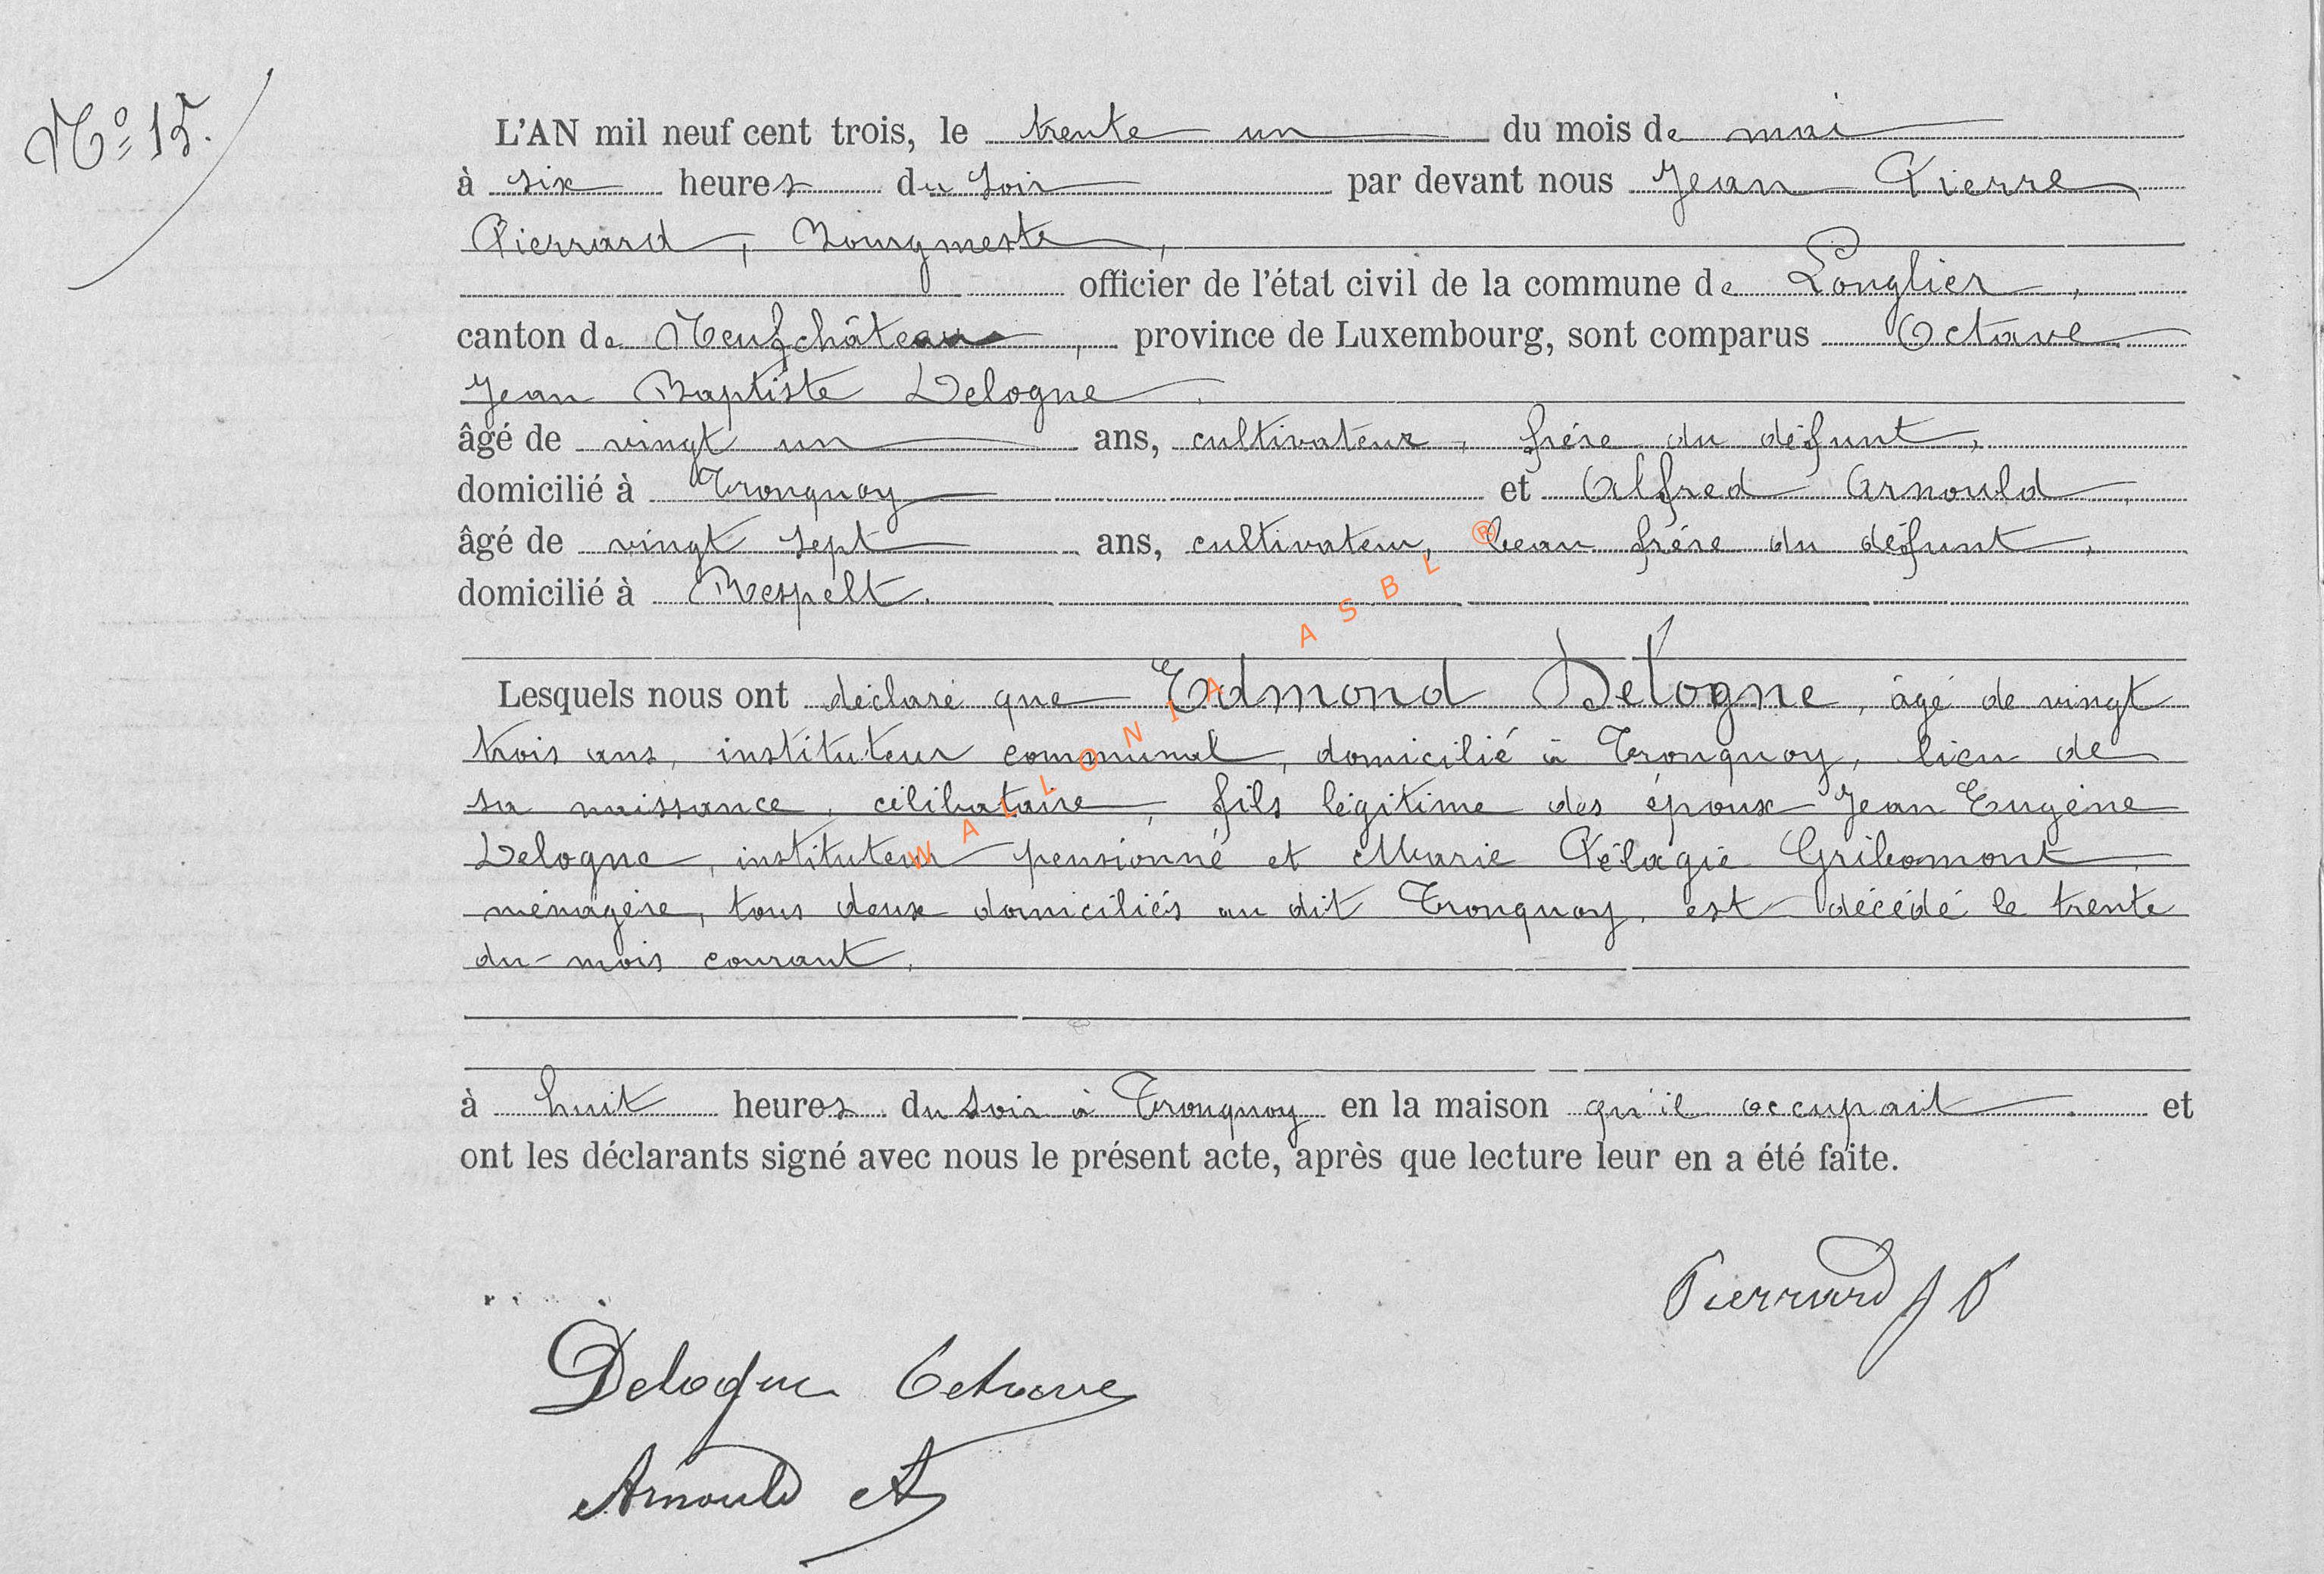 N° 15.
L'AN mil neuf cent trois, le trente un du mois de mai
à six heures du soir par devant nous Jean Pierre
Pierrard, Bourgmestre,
officier de l'état civil de la commune de Longlier,
canton de Neufchâteau, province de Luxembourg, sont comparus Octave
Jean Baptiste Delogne,
âgé de vingt un ans, cultivateur, frère du défunt,
domicilié à Tronquoy et Alfred Arnould,
âgé de vingt sept ans, cultivateur, beau frère du défunt,
domicilié à Respelt.
Lesquels nous ont déclaré que Edmond Delogne, âgé de vingt
trois ans, instituteur communal, domicilié à Tronquoy, lieu de
sa naissance, célibataire, fils légitime des époux Jean Eugène
Delogne, instituteur pensionné et Marie Pélagie Gribomont,
ménagère, tous deux domiciliés au dit Tronquoy, est décédé le trente
du mois courant,
à huit heures du soir à Tronquoy en la maison qu'il occupait. et
ont les déclarants signé avec nous le présent acte, après que lecture leur en a été faite.
Pierrard J P
Delogne Octave
Arnould A
WALLONIA ASBL ®